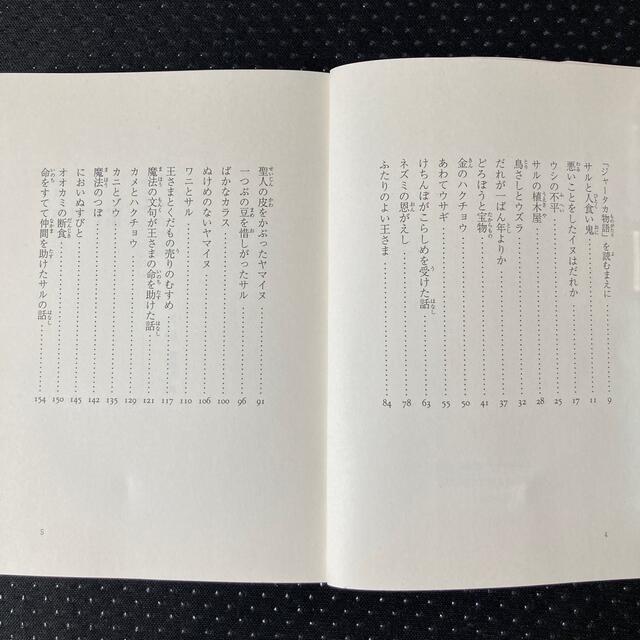 『ジャータカ物語』を読むまえに……9
サルと人食い鬼……11
悪いことをしたイヌはだれか……17
ウシの不平……25
サルの植木屋……28
鳥さしとウズラ……32
だれが一ばん年よりか……37
どろぼうと宝物……41
金のハクチョウ……50
あわてウサギ……55
けちんぼがこらしめを受けた話……63
ネズミの恩がえし……78
ふたりのよい王さま……84
4
聖人の皮をかぶったヤマイヌ……91
一つぶの豆を惜しがったサル……96
ばかなカラス……100
ぬけめのないヤマイヌ……106
ワニとサル……110
王さまとくだもの売りのむすめ……117
魔法の文句が王さまの命を助けた話……121
カメとハクチョウ……129
カニとゾウ……135
魔法のつぼ……142
においぬすびと……145
オオカミの断食……150
命をすてて仲間を助けたサルの話……154
5